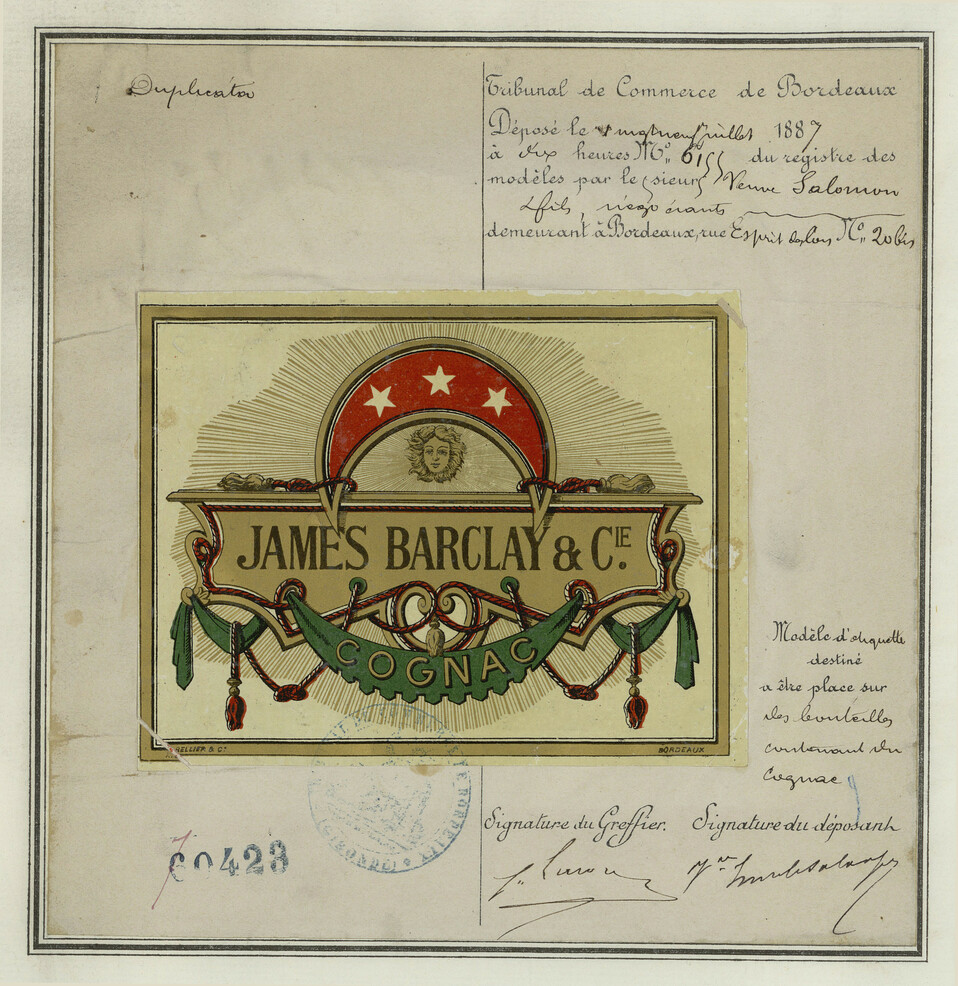 Duplicata
Tribunal de Commerce de Bordeaux
Déposé le vingt neuf juillet 1887
à dix heures No. 6155 du registre des
modèles par le sieur Veuve Salomon
& fils, négociants
demeurant à Bordeaux, rue Esprit des lois No. 20 bis
JAMES BARCLAY & CIE.
COGNAC
BORDEAUX
Modèle d'étiquette
destiné
a être place sur
des bouteilles
contenant du
Cognac
(GIRONDE)
Signature du Greffier. Signature du déposant
60423